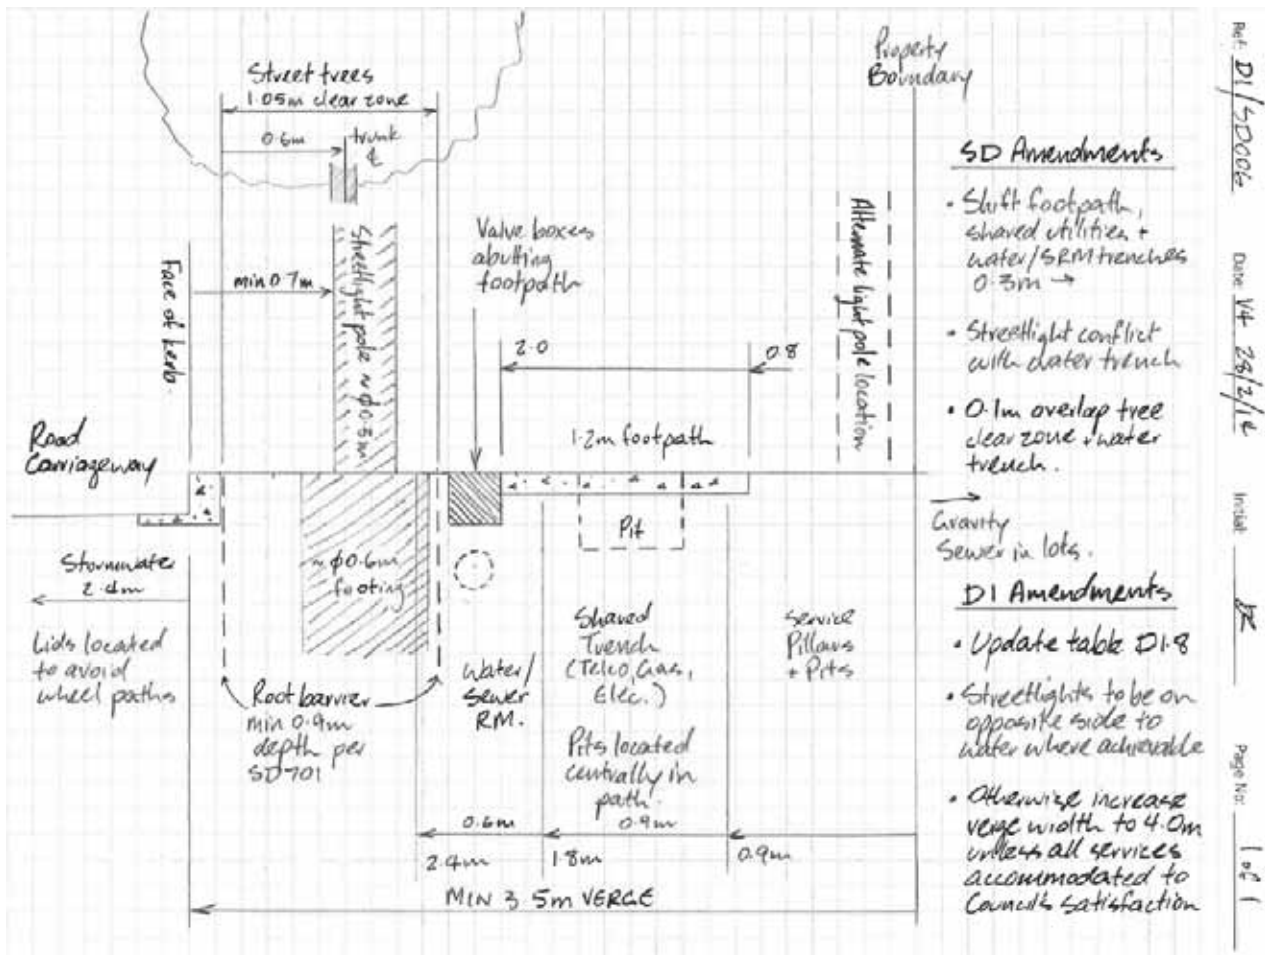 Street trees
1.05m clear zone
0.6m
trunk
℄
Property
Boundary
Face of kerb.
min 0.7m
Streetlight pole ~ϕ0.3m
Valve boxes
abutting
footpath
2.0
0.8
Alternate light pole location
1.2m footpath
Road
Carriageway
Pit
Gravity
Sewer in lots.
Stormwater
2.4m
Lids located
to avoid
wheel paths
~ϕ0.6m
footing
Root barrier
min 0.9m
depth per
SD701
Water/
Sewer
RM.
Shared
Trench
(Telco, Gas,
Elec.)
Pits located
centrally in
path.
Service
Pillars
+ Pits
0.6m
0.9m
2.4m
1.8m
0.9m
MIN 3.5m VERGE
SD Amendments
• Shift footpath,
shared utilities +
water/SRM trenches
0.3m →
• Streetlight conflict
with water trench
• 0.1m overlap tree
clear zone + water
trench.
D1 Amendments
• Update table D1.8
• Streetlights to be on
opposite side to
water where achievable
• Otherwise increase
verge width to 4.0m
unless all services
accommodated to
Council's satisfaction
Ref: D1/SD006
Date V4 28/2/14
Initial
Page No: 1 of 1